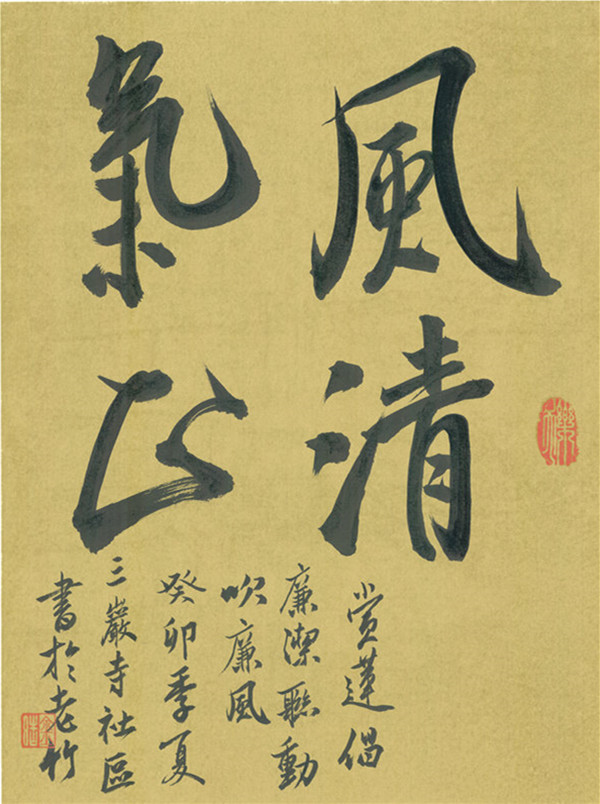 風清
氣正
賞蓮倡
廉潔聯動
吹廉風
癸卯季夏
三巖寺社區
書於老竹